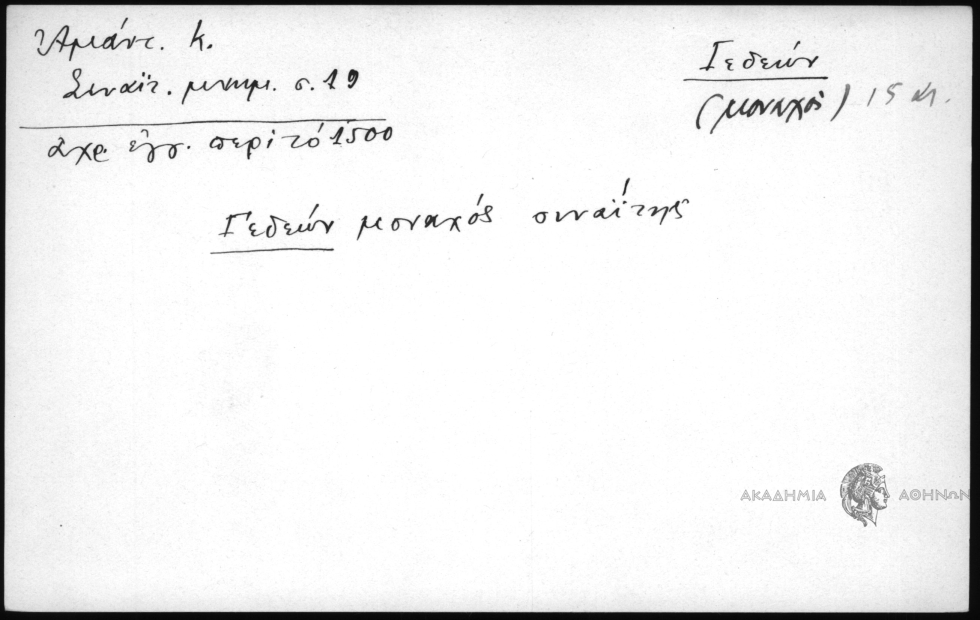 Ἀμάντ. Κ.
Σιναϊτ. μνημ. σ. 19
ἀχρ ἔγγ. περὶ τό 1500
Γεδεών
(μοναχός) 15 αι.
Γεδεών μοναχός σιναΐτης
ΑΚΑΔΗΜΙΑ ΑΘΗΝΩΝ